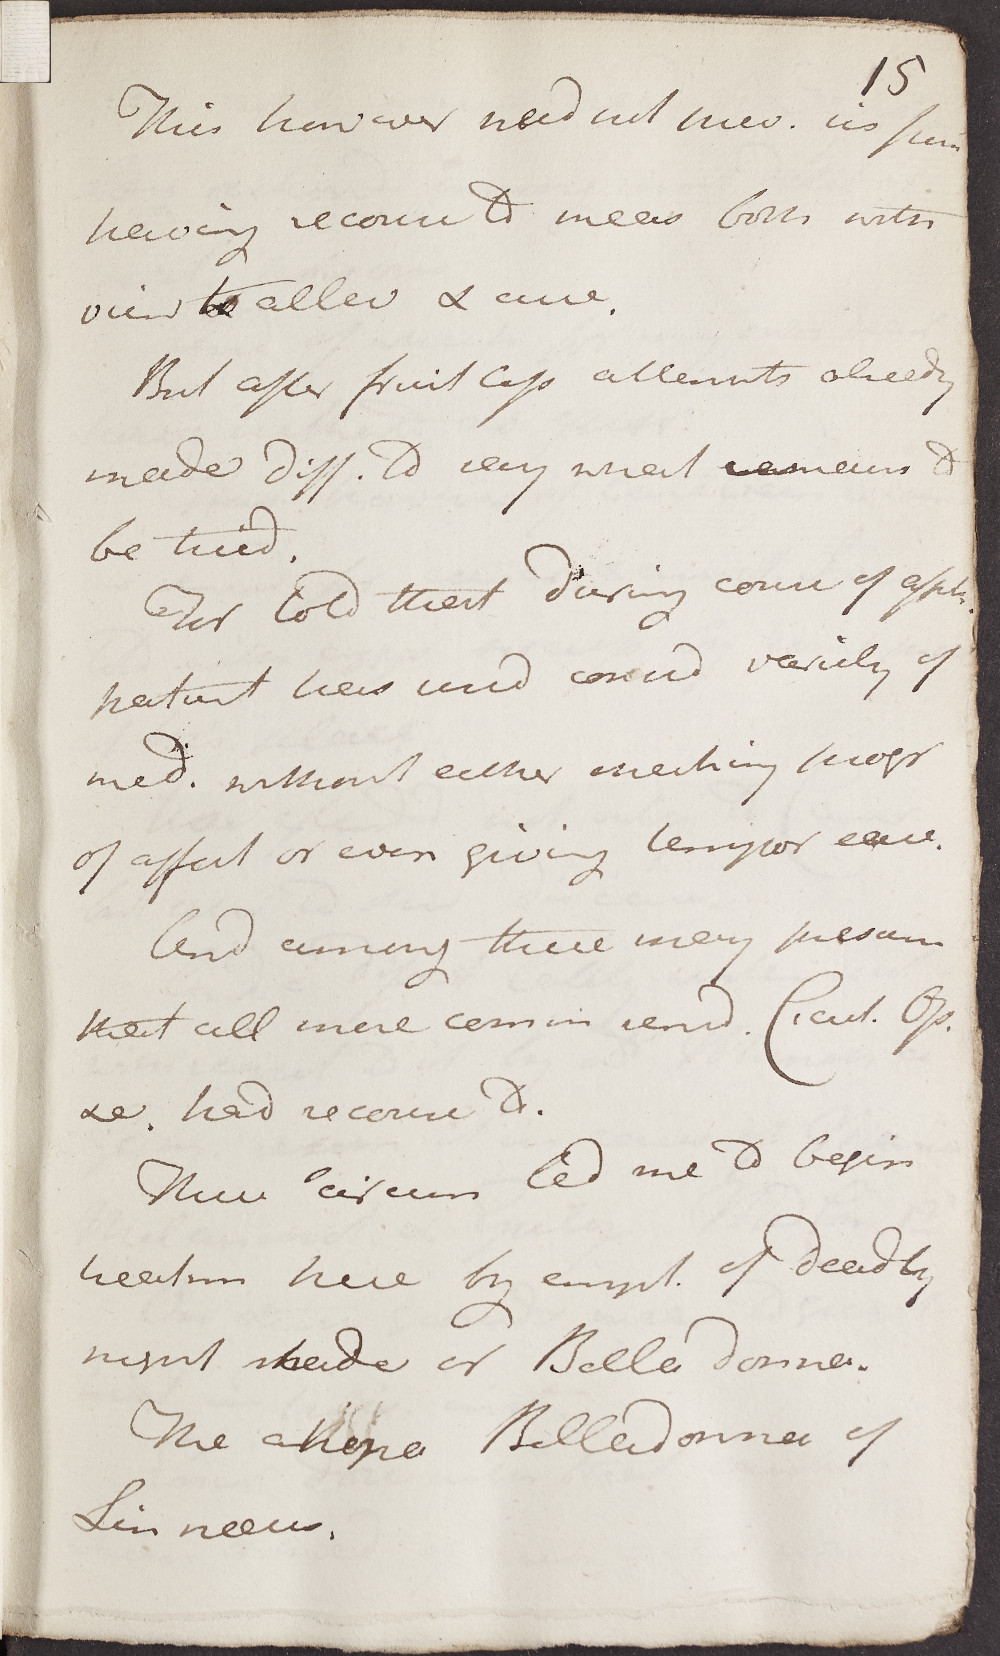 15
This however need not prev. us from
having recourse to meas both with
view to allev & cure.
But after fruitless attempts already
made diff. to say what remains to
be tried.
For told that during course of
patient has used consid variety of
med. without either
of affect or even giving tempor ease.
And among these may presum
that all more common remd. Cicut. Op.
&c. had recourse to.
These circum led me to begin
here by empl. of deadly
night shade or Bella donna.
The Atropa Belladonna of
Linneus.